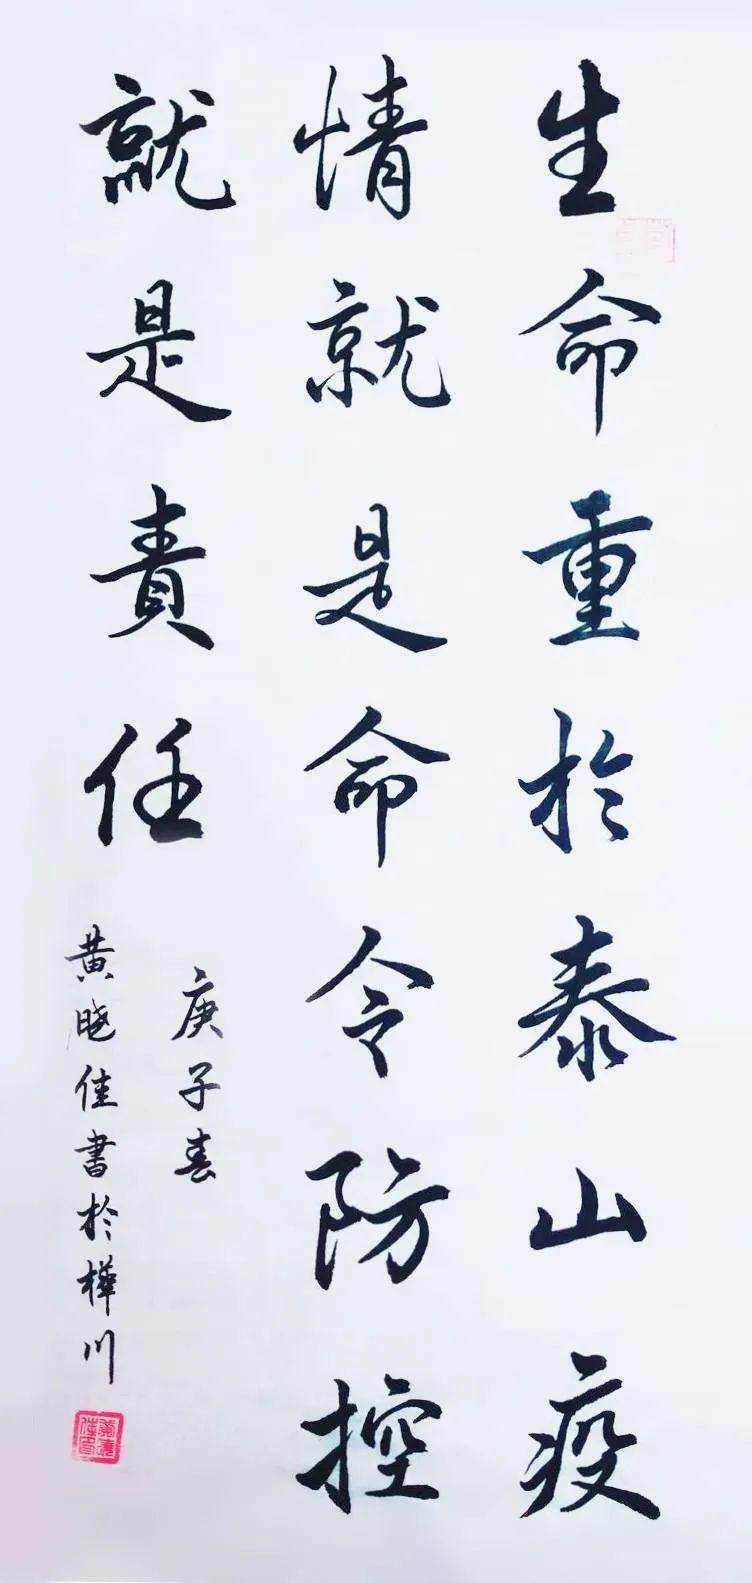 生命重於泰山疫
情就是命令防控
就是責任
庚子春
黄曉佳書於樺川